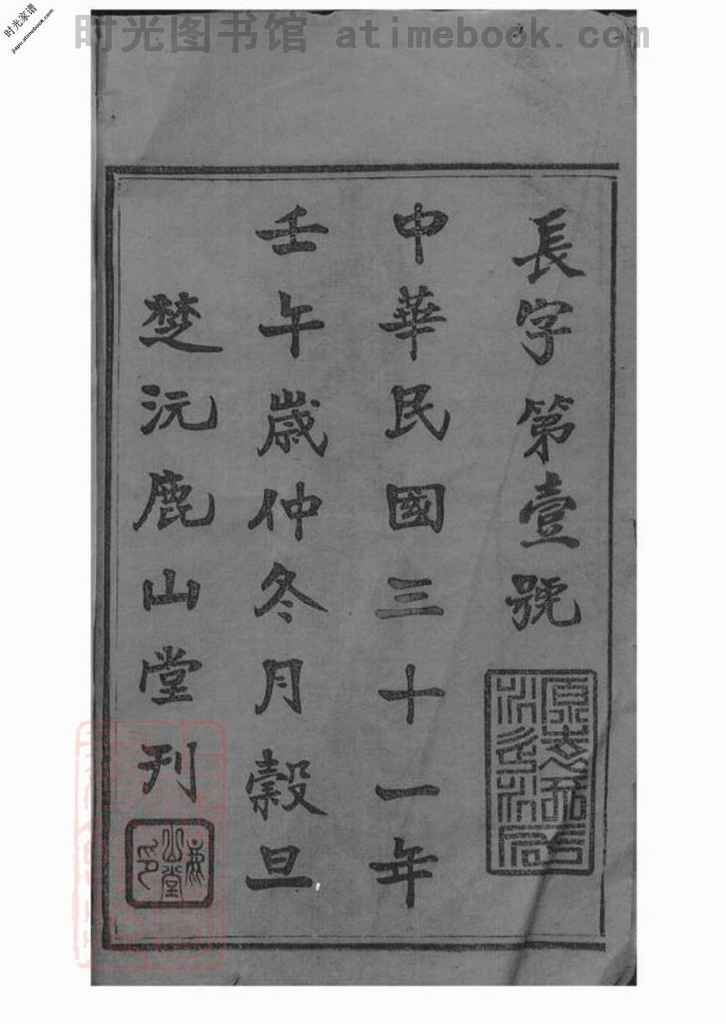 时光图书馆 atimebook.com
时光家谱
jiapu.atimebook.com
長字第壹號
中華民國三十一年
壬午歲仲冬月穀旦
楚沅鹿山堂刊
鹿山堂印